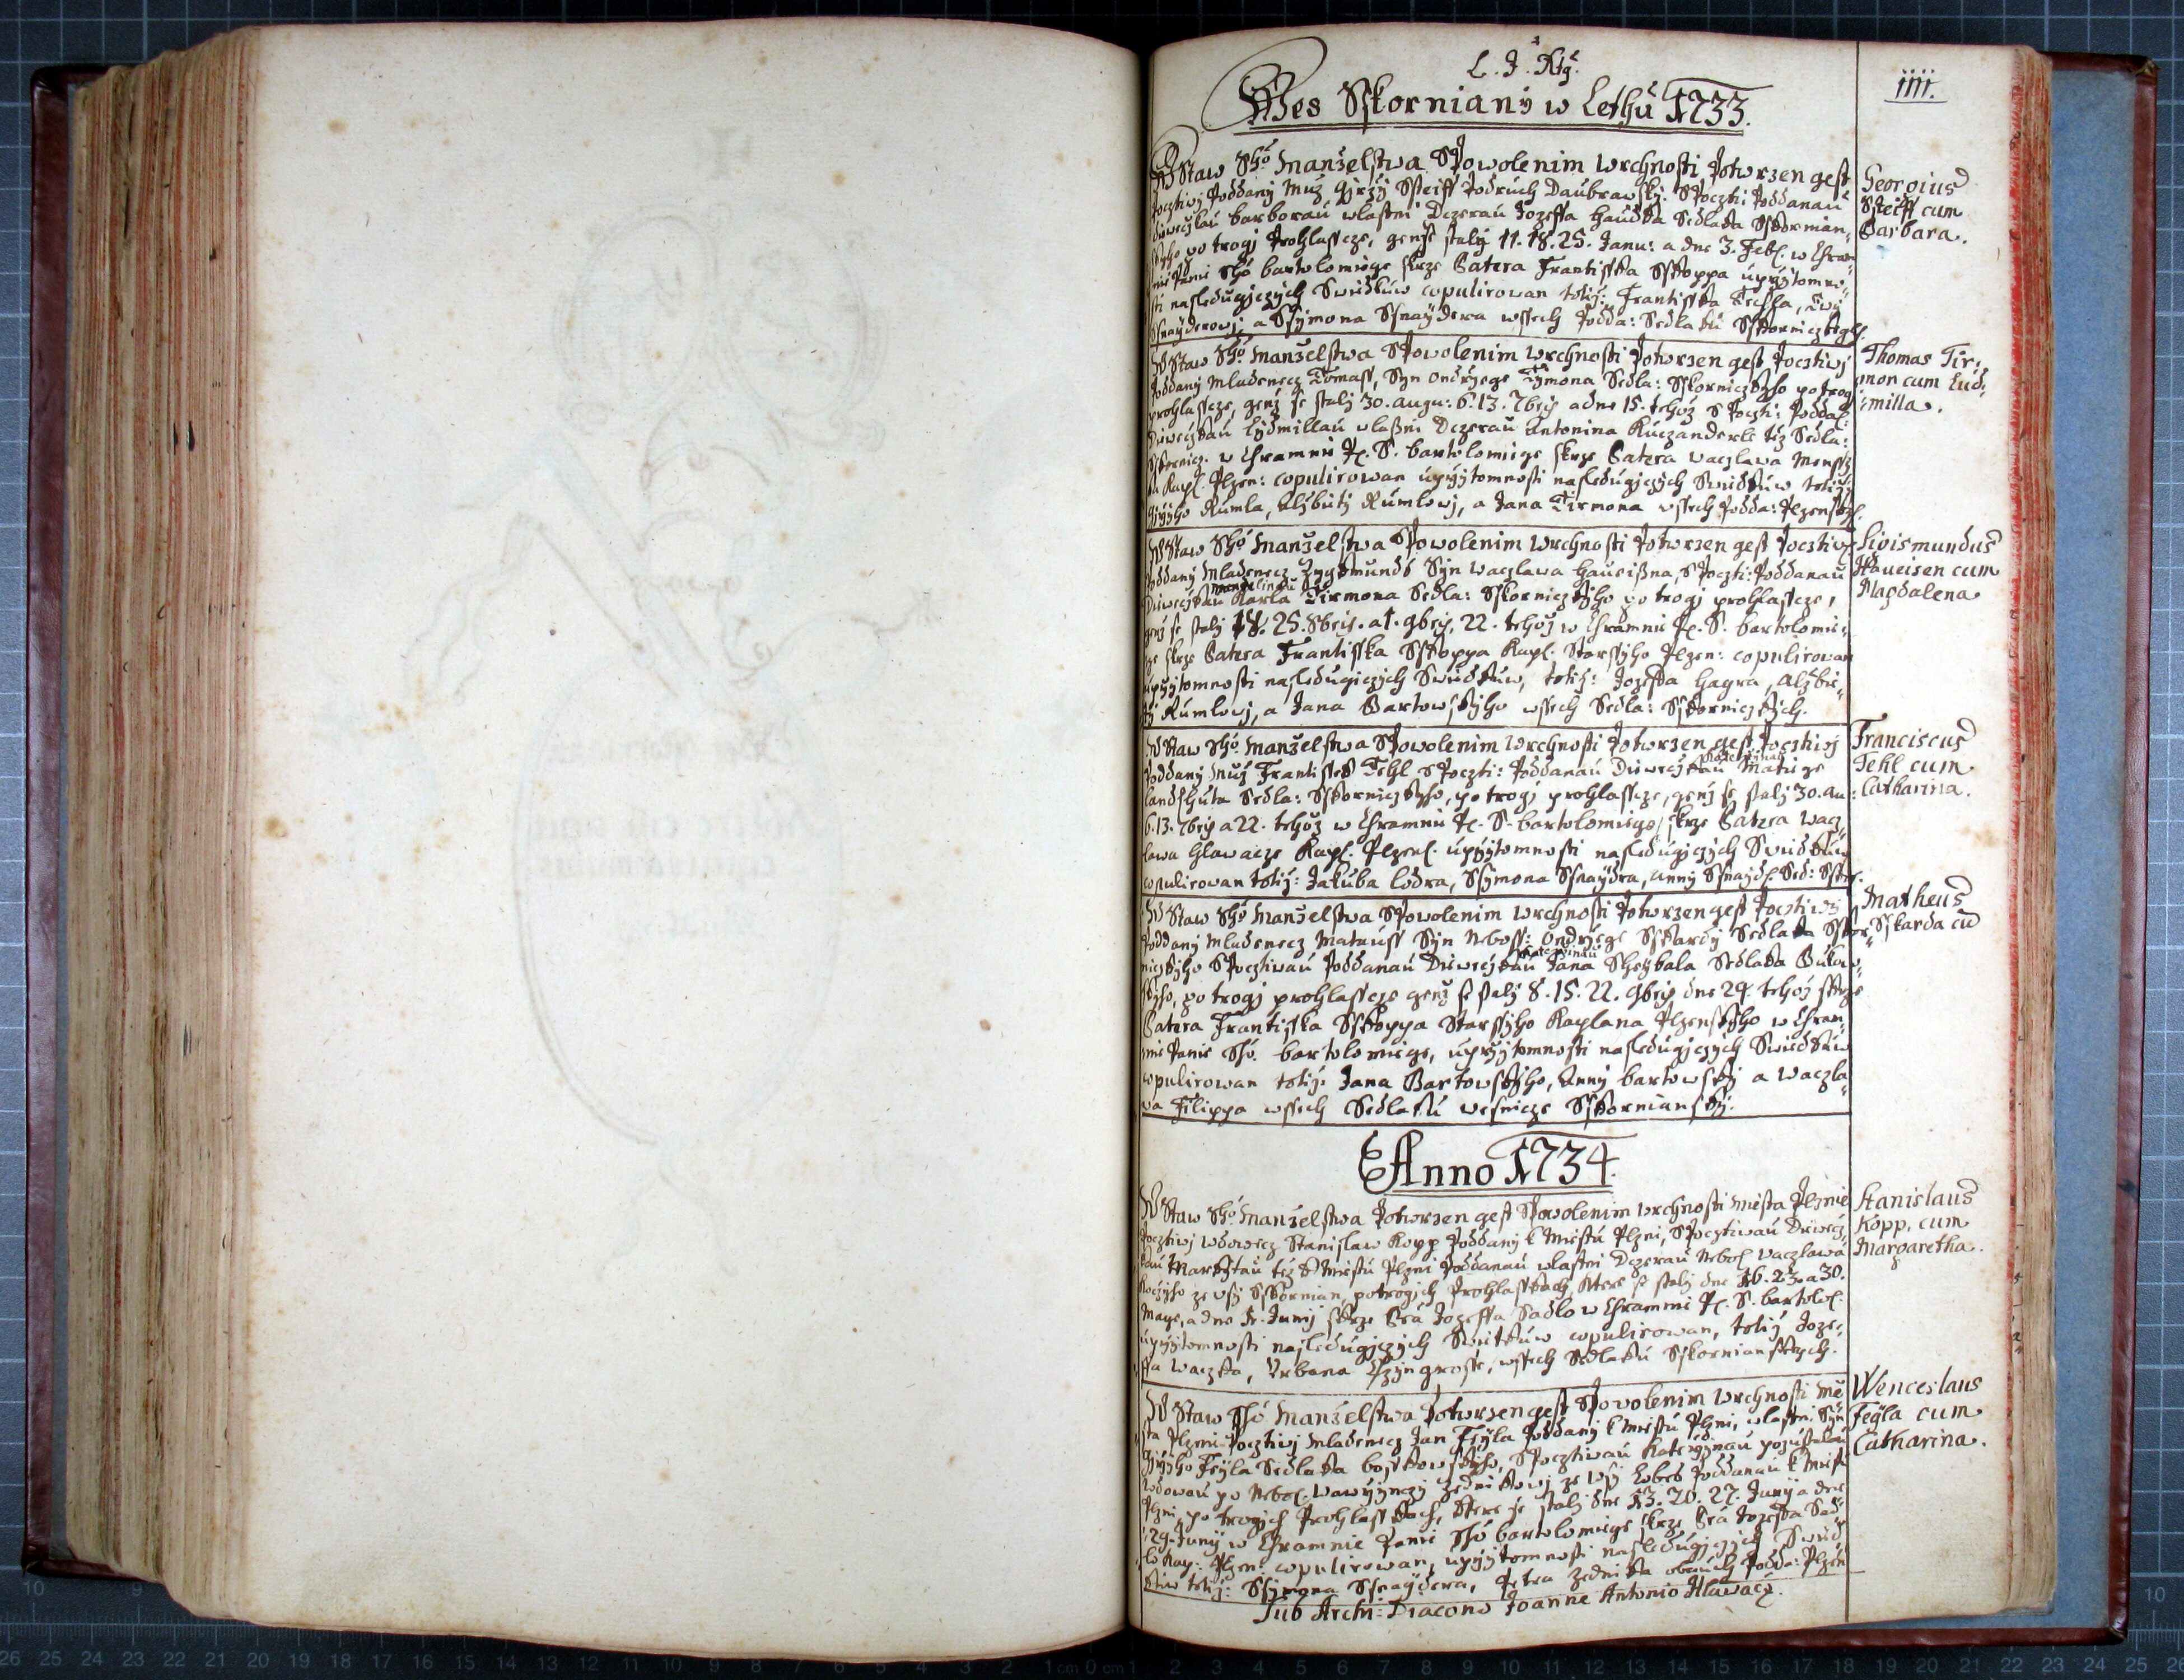 L. J. Xtg.
Wes Sskorniany w Lethu 1733.
iiii.
W Staw Sho Manzelstwa S Powolenim Wrchnosti Potwrzen gest
Pocztiwy Poddany Muž Girzy Ssteiff Podruch Daubrawsky. S Poczti: Poddanau
Diweczkau Barborau wlastni Dczerau Jozeffa Haudka Sedlaka Sskornian¬
skyho po trogj Prohlassce, genž se staly 11. 18. 25. Janu: a dne 3. Feb. w Chram¬
nie Panie Sho Bartolomiege skrze Patera Frantisska Sskoppa upržytomno¬
sti nasledugiczych Swiedkuw copulirowan totiž: Frantisska Techla, Ewy
Ssnayderowy, a Ssymona Ssnaydera wssech Podda: Sedlaku Sskorniczkych.
Georgius
Ssteiff cum
Barbara.
W Staw Sho Manzelstwa S Powolenim Wrchnosti Potwrzen gest Pocztiwy
Poddany Mladenecz Tomass, Syn Ondržege Tymona Sedla: Sskorniczkyho po trogj
prohlassce, genž se staly 30. augu: 6. 13. 7bris a dne 15. tehož S Poczti: Poddal
Diweczkau Lydmillau wlastni Dczerau Antonina Kuczanderle též Sedla:
Sskornicz. w Chramnie P. S. Bartolomiege skrze Patera Waczlawa Menssy¬
ka Kapl. Plzen: copulirowan upržytomnosti nasledugiczych Swiedkuw totiž:
Giržyho Rumla, Alžbiety Rumlowj, a Jana Tirmona wssech Podda: Plzenskych.
Thomas Tir¬
mon cum Lud¬
milla.
W Staw Sho Manzelstwa S Powolenim Wrchnosti Potwrzen gest Pocztiwy
Poddany Mladenecz Zygkmundt Syn Waczlawa Haueisna, S Poczti: Poddanau
Mandelinau
Diweczkau Karla Tirmona Sedla: Sskorniczkyho po trogj prohlassce,
genž se staly 18. 25. 8bris. a 1. 9bris, 22. tehož w Chramnie P. S. Bartolomie¬
ge skrze Patera Frantisska Sskoppa Kapl: Starssyho Plzen: copulirowan
upržytomnosti nasledugiczych Swiedkuw, totiž: Jozeffa Hagra, Alžbie¬
ty Rumlowj, a Jana Bartowskyho wssech Sedla: Sskorniczkych.
Sigismundus
Haueisen cum
Magdalena
W Staw Sho Manzelstwa S Powolenim Wrchnosti Potwrzen gest Pocztiwy
Katerzinau
Poddany Muž Frantissek Tehl S Poczti: Poddanau Diweczkau Matiege
Landshuta Sedla: Sskorniczkyho, po trogj prohlassce, genž se staly 30. au:
6. 13. 7bris a 22. tehož w Chramnie P. S. Bartolomiege, skrze Patera Wacz¬
lawa Hlawacze Kapl. Plzen. upržytomnosti nasledugiczych Swiedkuw
copulirowan totiž: Jakuba Lodra, Ssymona Ssnaydra, Anny Ssnayd. Sed: Sskor.
Franciscus
Tehl cum
Catharina.
W Staw Sho Manzelstwa S Powolenim Wrchnosti Potwrzen gest Pocztiwy
Poddany Mladenecz Matauss Syn Neboss: Ondržege Sskardy Sedlaka Sskor¬
Katerzinau
niczkyho S Pocztiwau Poddanau Diweczkau Jana Skeybala Sedlaka Bukow¬
skyho, po trogj prohlassce genž se staly 8. 15. 22. 9bris dne 24. tehož skrze
Patera Frantisska Sskoppa Starssyho Kaplana Plzenskyho w Chram¬
nie Panie Sho. Bartolomiege, upržytomnosti nasledugiczych Swiedkuw
copulirowan totiž. Jana Bartowskyho, Anny Bartowsky a Waczla¬
wa Filippa wssech Sedlaku wesnicze Sskornianský.
Matheus
Sskarda cu
Anno 1734.
W Staw Sho Manzelstwa Potwrzen gest S Powolenim Wrchnosti Miesta Plznie
Pocztiwy Wdowecz Stanislaw Kopp Poddany k Miestu Plzni, S Pocztiwau Diwecz¬
kau Markytau též k Miestu Plzni Poddanau wlastni Dczerau Nebol Waczlawa
ze wsy Sskornian, po trogich Prohlasskach, ktere se staly dne 16. 23. a 30.
Maye, a dne 1. Junij skrze Pra Jozeffa Sadlo w Chramnie P. S. Bartolo.
upržytomnosti nasledugiczych Swiedkuw copulirowan, totiž Joze¬
ffa Waczka, Urbana Czyngrosse, wssech Sedlaku Sskornianskych.
Stanislaus
Kopp. cum
Margaretha.
W Staw Sho Manzelstwa Potwrzen gest S Powolenim Wrchnosti Mie
sta Plzni Pocztiwy Mladenecz Jan Feyla Poddany k Miestu Plzni, wlastni Syn
Giržyho Feyla Sedlaka Božkowskyho, S Pocztiwau Katerzynau pozustalau
Wdowau po Nebol. Wawržynczy Zednikowj ze wsy Lobes Poddanau k Miest
Plzni, po trogich Prohlasskach, ktere se staly dne 13. 20. 27. Juny a dne
29. Juny w Chramnie Panie Sho Bartolomiege skrze Pra Jozeffa Sad¬
lo Kap: Plzen: copulirowan, upržytomnosti nasledugiczych Swied
kuw totiž: Ssymona Ssnaydera, Petra Zednika obauch Podda: Plzen
Wenceslaus
Feyla cum
Catharina.
Sub Archi: Diacono Joanne Antonio Hlawacz.